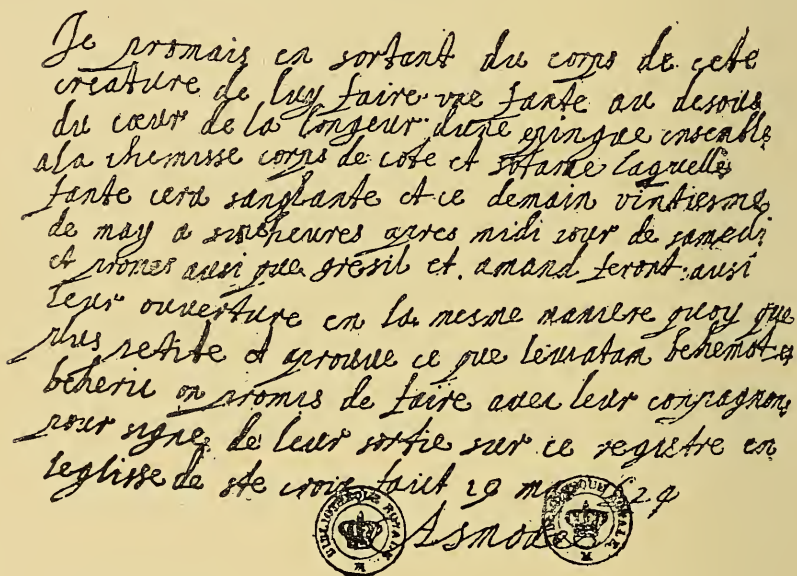 Je promais en sortant du corps de cete
creature de luy faire vne fante au desous
du cœur de la longeur dune epingue ensemble
ala chemisse corps de cote et sotane laquelle
fante cera sanglante et ce demain vintiesme
de may a heures apres midi iour de samedi
et promes ausi que gresil et amand feront ausi
leur ouverture en la mesme maniere quoy que
plus petite et aprouue ce que leuiatam behemot
beherie on promis de faire auec leur conpagnon
pour signe de leur sortie sur ce registre en
leglisse de ste croix faict 19 may
Asmod
BIBLIOTHEQUE ROYALE
BIBLIOTHEQUE ROYALE